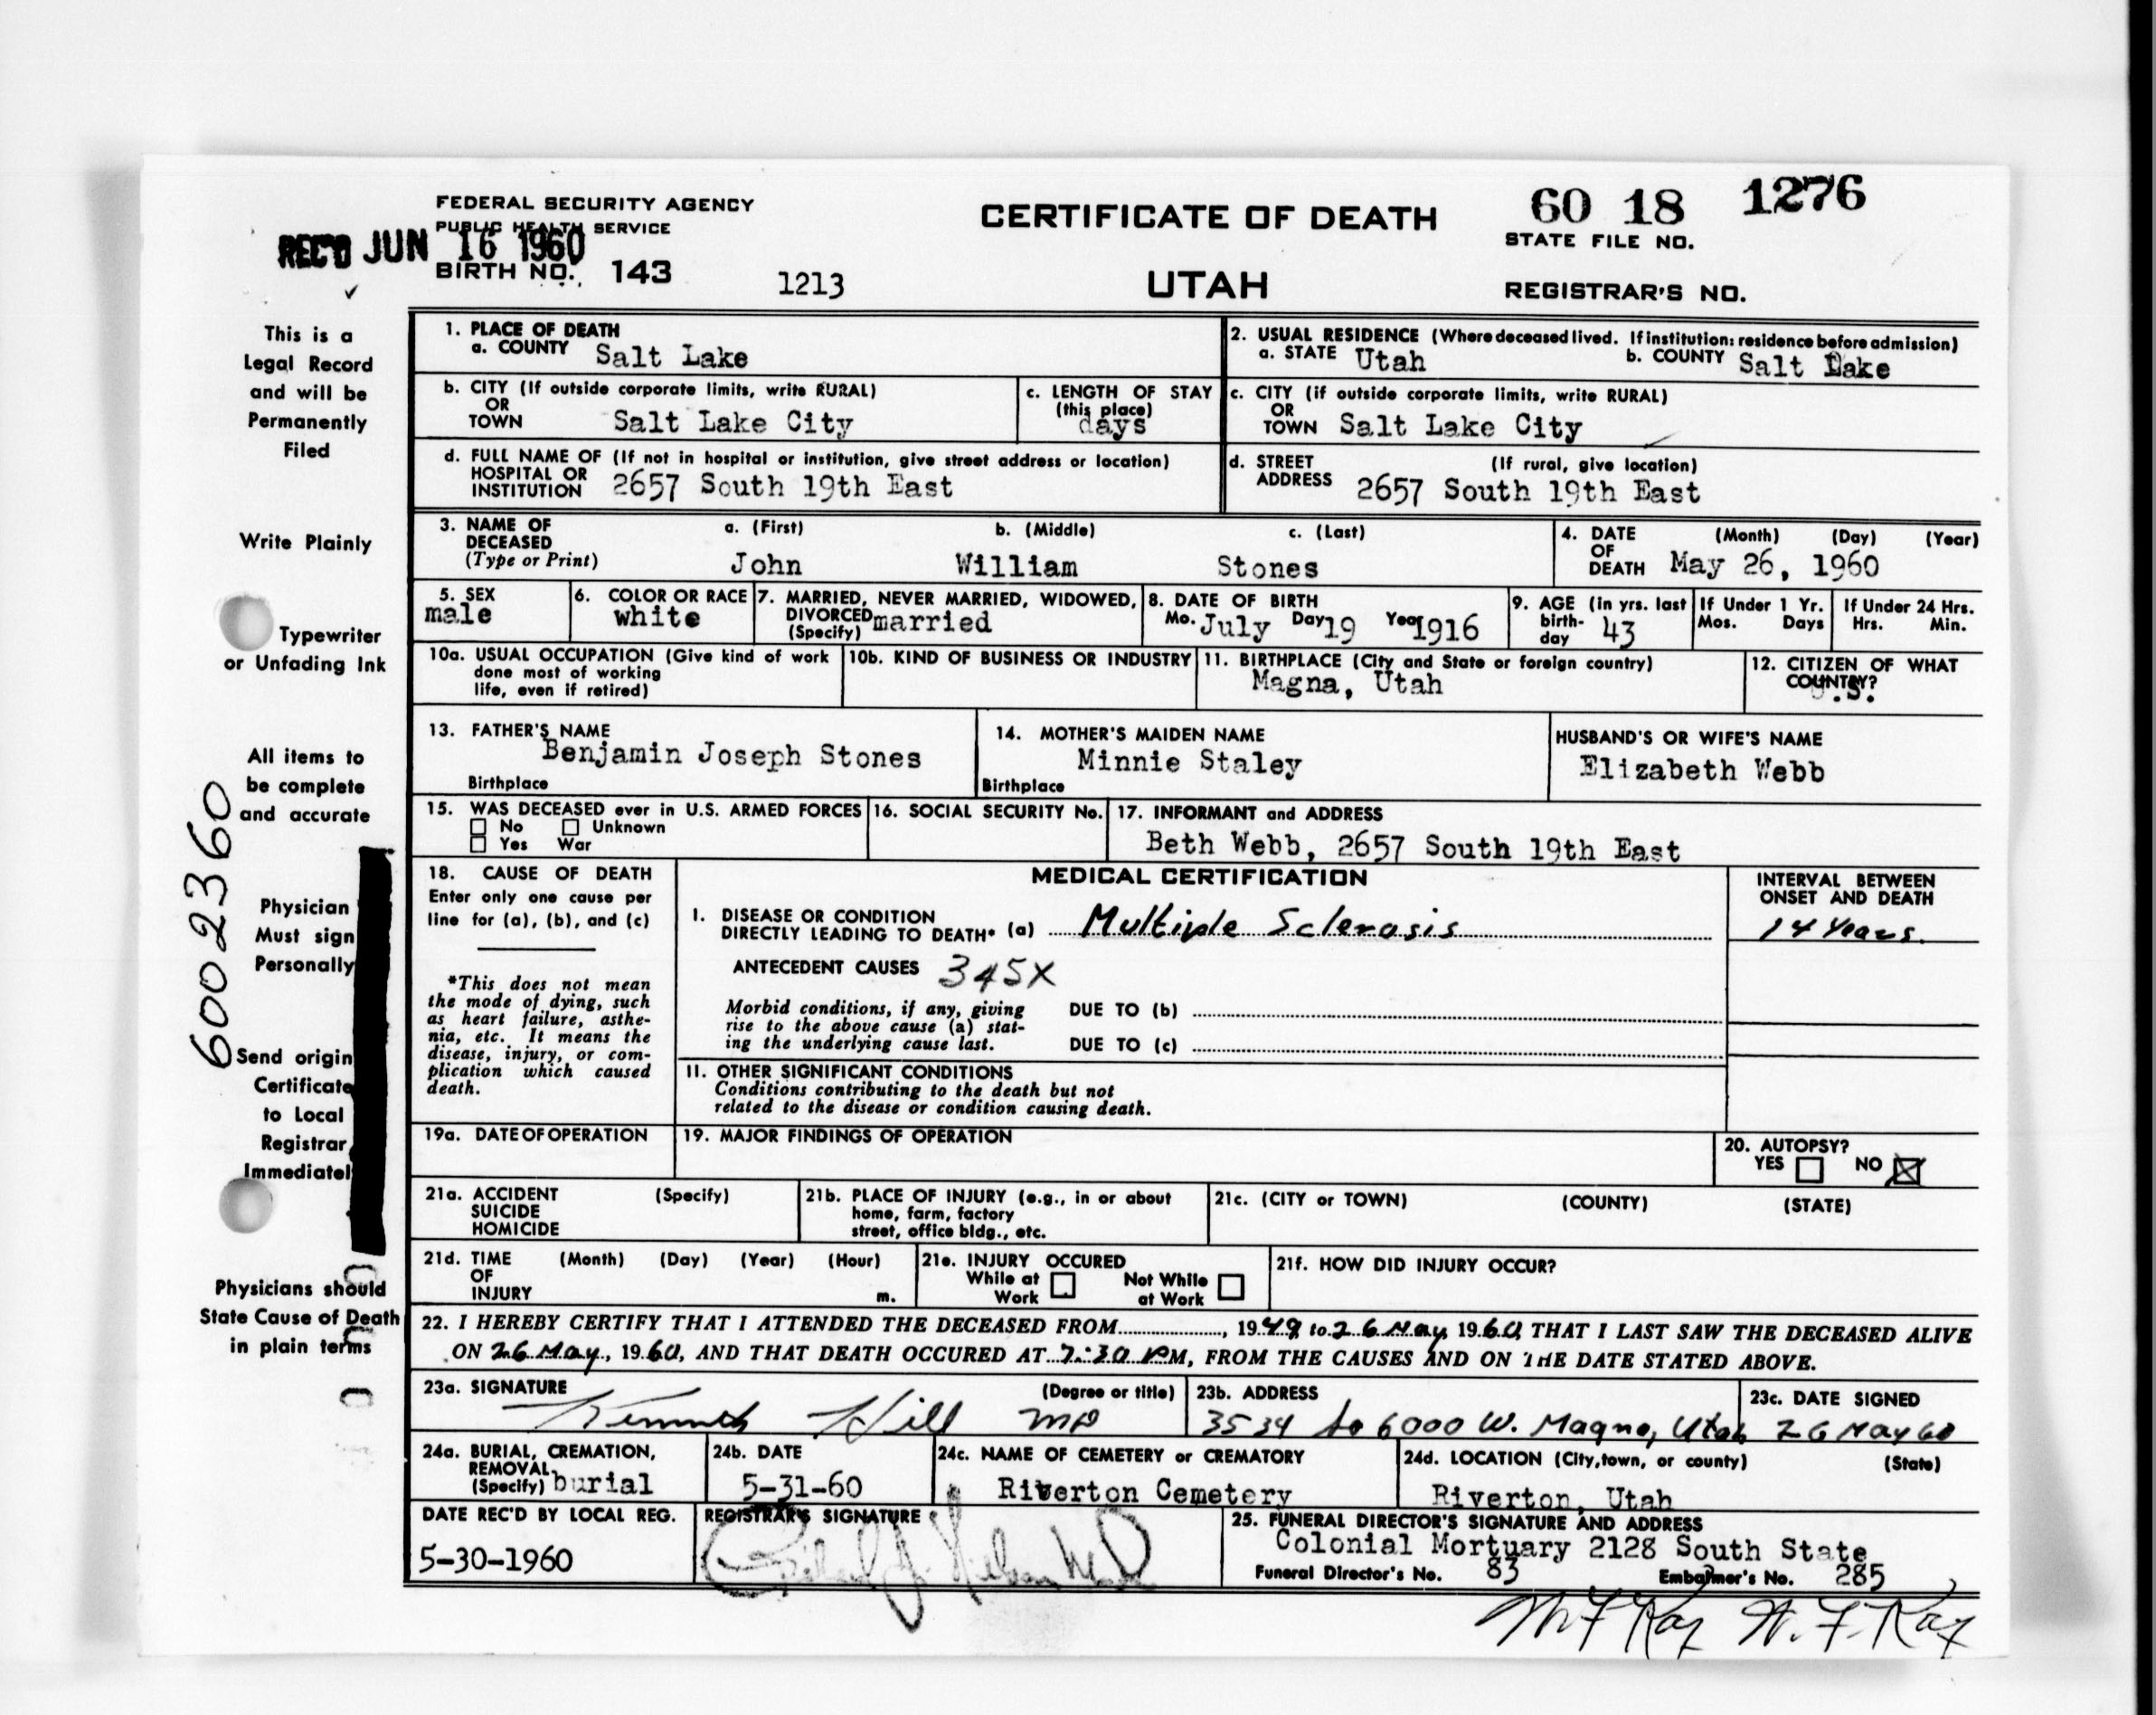 FEDERAL SECURITY AGENCY
PUBLIC HEALTH SERVICE
REC'D JUN 16 1960
BIRTH NO. 143
1213
CERTIFICATE OF DEATH
UTAH
60 18 1276
STATE FILE NO.
REGISTRAR'S NO.
This is a
Legal Record
and will be
Permanently
Filed
Write Plainly
Typewriter
or Unfading Ink
All items to
be complete
and accurate
Physician
Must sign
Personally
Send origin
Certificate
to Local
Registrar
Immediatel
Physicians should
State Cause of Death
in plain terms
6002360
1. PLACE OF DEATH
a. COUNTY Salt Lake
2. USUAL RESIDENCE (Where deceased lived. If institution: residence before admission)
a. STATE Utah b. COUNTY Salt Lake
b. CITY (If outside corporate limits, write RURAL)
OR
TOWN Salt Lake City
c. LENGTH OF STAY
(this place)
days
c. CITY (if outside corporate limits, write RURAL)
OR
TOWN Salt Lake City
d. FULL NAME OF (If not in hospital or institution, give street address or location)
HOSPITAL OR
INSTITUTION 2657 South 19th East
d. STREET (If rural, give location)
ADDRESS 2657 South 19th East
3. NAME OF a. (First) b. (Middle) c. (Last)
DECEASED
(Type or Print) John William Stones
4. DATE (Month) (Day) (Year)
OF
DEATH May 26, 1960
5. SEX
male
6. COLOR OR RACE
white
7. MARRIED, NEVER MARRIED, WIDOWED,
DIVORCED married
(Specify)
8. DATE OF BIRTH
Mo. July Day 19 Year 1916
9. AGE (in yrs. last
birth-
day 43
If Under 1 Yr.
Mos. Days
If Under 24 Hrs.
Hrs. Min.
10a. USUAL OCCUPATION (Give kind of work
done most of working
life, even if retired)
10b. KIND OF BUSINESS OR INDUSTRY
11. BIRTHPLACE (City and State or foreign country)
Magna, Utah
12. CITIZEN OF WHAT
COUNTRY?
U.S.
13. FATHER'S NAME
Benjamin Joseph Stones
Birthplace
14. MOTHER'S MAIDEN NAME
Minnie Staley
Birthplace
HUSBAND'S OR WIFE'S NAME
Elizabeth Webb
15. WAS DECEASED ever in U.S. ARMED FORCES
No Unknown
Yes War
16. SOCIAL SECURITY No.
17. INFORMANT and ADDRESS
Beth Webb, 2657 South 19th East
18. CAUSE OF DEATH
Enter only one cause per
line for (a), (b), and (c)
*This does not mean
the mode of dying, such
as heart failure, asthe-
nia, etc. It means the
disease, injury, or com-
plication which caused
death.
MEDICAL CERTIFICATION
I. DISEASE OR CONDITION
DIRECTLY LEADING TO DEATH* (a) Multiple Sclerosis
INTERVAL BETWEEN
ONSET AND DEATH
14 Years.
ANTECEDENT CAUSES 345X
Morbid conditions, if any, giving
rise to the above cause (a) stat-
ing the underlying cause last.
DUE TO (b)
DUE TO (c)
11. OTHER SIGNIFICANT CONDITIONS
Conditions contributing to the death but not
related to the disease or condition causing death.
19a. DATE OF OPERATION
19. MAJOR FINDINGS OF OPERATION
20. AUTOPSY?
YES NO
21a. ACCIDENT (Specify)
SUICIDE
HOMICIDE
21b. PLACE OF INJURY (e.g., in or about
home, farm, factory
street, office bldg., etc.
21c. (CITY or TOWN) (COUNTY) (STATE)
21d. TIME (Month) (Day) (Year) (Hour)
OF
INJURY m.
21e. INJURY OCCURED
While at Work
Not While at Work
21f. HOW DID INJURY OCCUR?
22. I HEREBY CERTIFY THAT I ATTENDED THE DECEASED FROM , 1949 to 26 May 1960, THAT I LAST SAW THE DECEASED ALIVE
ON 26 May, 1960, AND THAT DEATH OCCURED AT 7:30 PM, FROM THE CAUSES AND ON THE DATE STATED ABOVE.
23a. SIGNATURE (Degree or title)
Kenneth Hill MD
23b. ADDRESS
3534 So 6000 W. Magna, Utah
23c. DATE SIGNED
26 May 60
24a. BURIAL, CREMATION,
REMOVAL
(Specify) burial
24b. DATE
5-31-60
24c. NAME OF CEMETERY or CREMATORY
Riverton Cemetery
24d. LOCATION (City, town, or county) (State)
Riverton, Utah
DATE REC'D BY LOCAL REG.
5-30-1960
REGISTRAR'S SIGNATURE
25. FUNERAL DIRECTOR'S SIGNATURE AND ADDRESS
Colonial Mortuary 2128 South State
Funeral Director's No. 83 Embalmer's No. 285
W. F. Kay